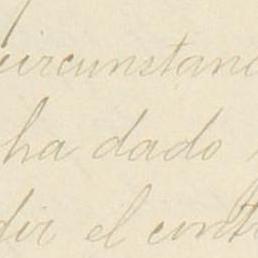 circunstanc
ha dado
dir el cont